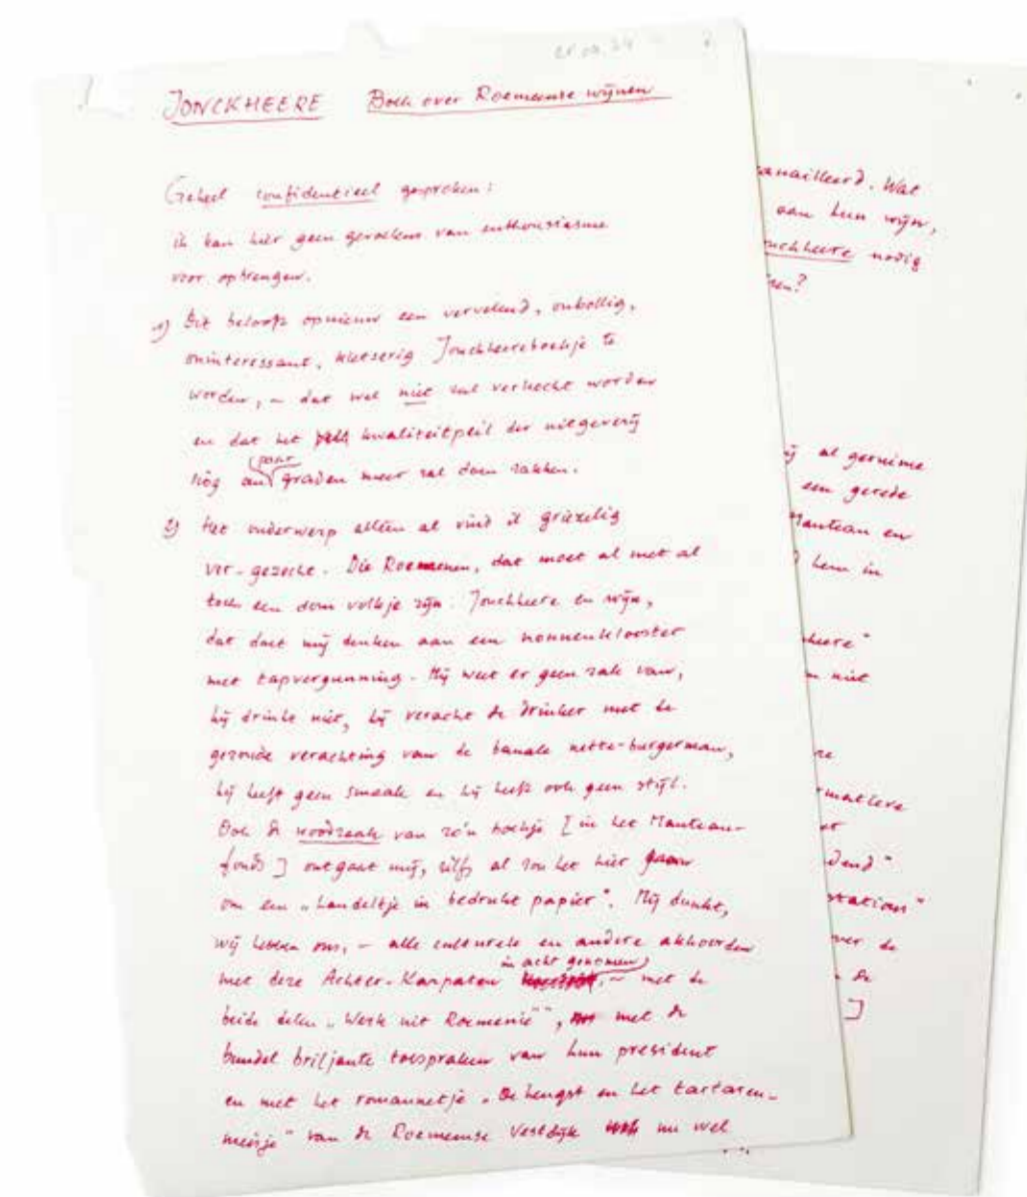 JONCKHEERE Boek over Roemeense wijnen
Geheel confidentieel gesproken:
ik kan hier geen gevoelens van enthousiasme
voor opbrengen.
1) Dit belooft opnieuw een vervelend, onbollig,
oninteressant, kletserig Jonckheereboekje te
worden, – dat wel niet zal verkocht worden
en dat het kwaliteitpeil der uitgeverij
nóg een paar graden meer zal doen zakken.
2) Het onderwerp alleen al vind ik griezelig
ver-gezocht. Die Roemenen, dat moet al met al
toch een dom volkje zijn. Jonckheere en wijn,
dat doet mij denken aan een nonnenklooster
met tapvergunning. Hij weet er geen zak van,
hij drinkt niet, hij veracht de drinker met de
gezonde verachting van de banale nette-burgerman,
hij heeft geen smaak en hij heeft ook geen stijl.
Ook de noodzaak van zo'n boekje [in het Manteau-
fonds] ontgaat mij, zelfs al zou het hier gaan
om een „handeltje in bedrukt papier". Mij dunkt,
wij hebben ons, – alle culturele en andere akkoorden
met deze Achter-Karpaten in acht genomen, – met de
beide delen „Werk uit Roemenië", met de
bundel briljante toespraken van hun president
en met het romannetje „De hengst en het tartaren-
meisje" van de Roemeense Vestdijk nu wel
anailleerd. Wat
aan hun wijn,
nckheere nodig
en?
ij al geruime
een gerede
Manteau en
hem in
kheere"
niet
re
rmatieve
et
dend"
station"
ver de
de
]